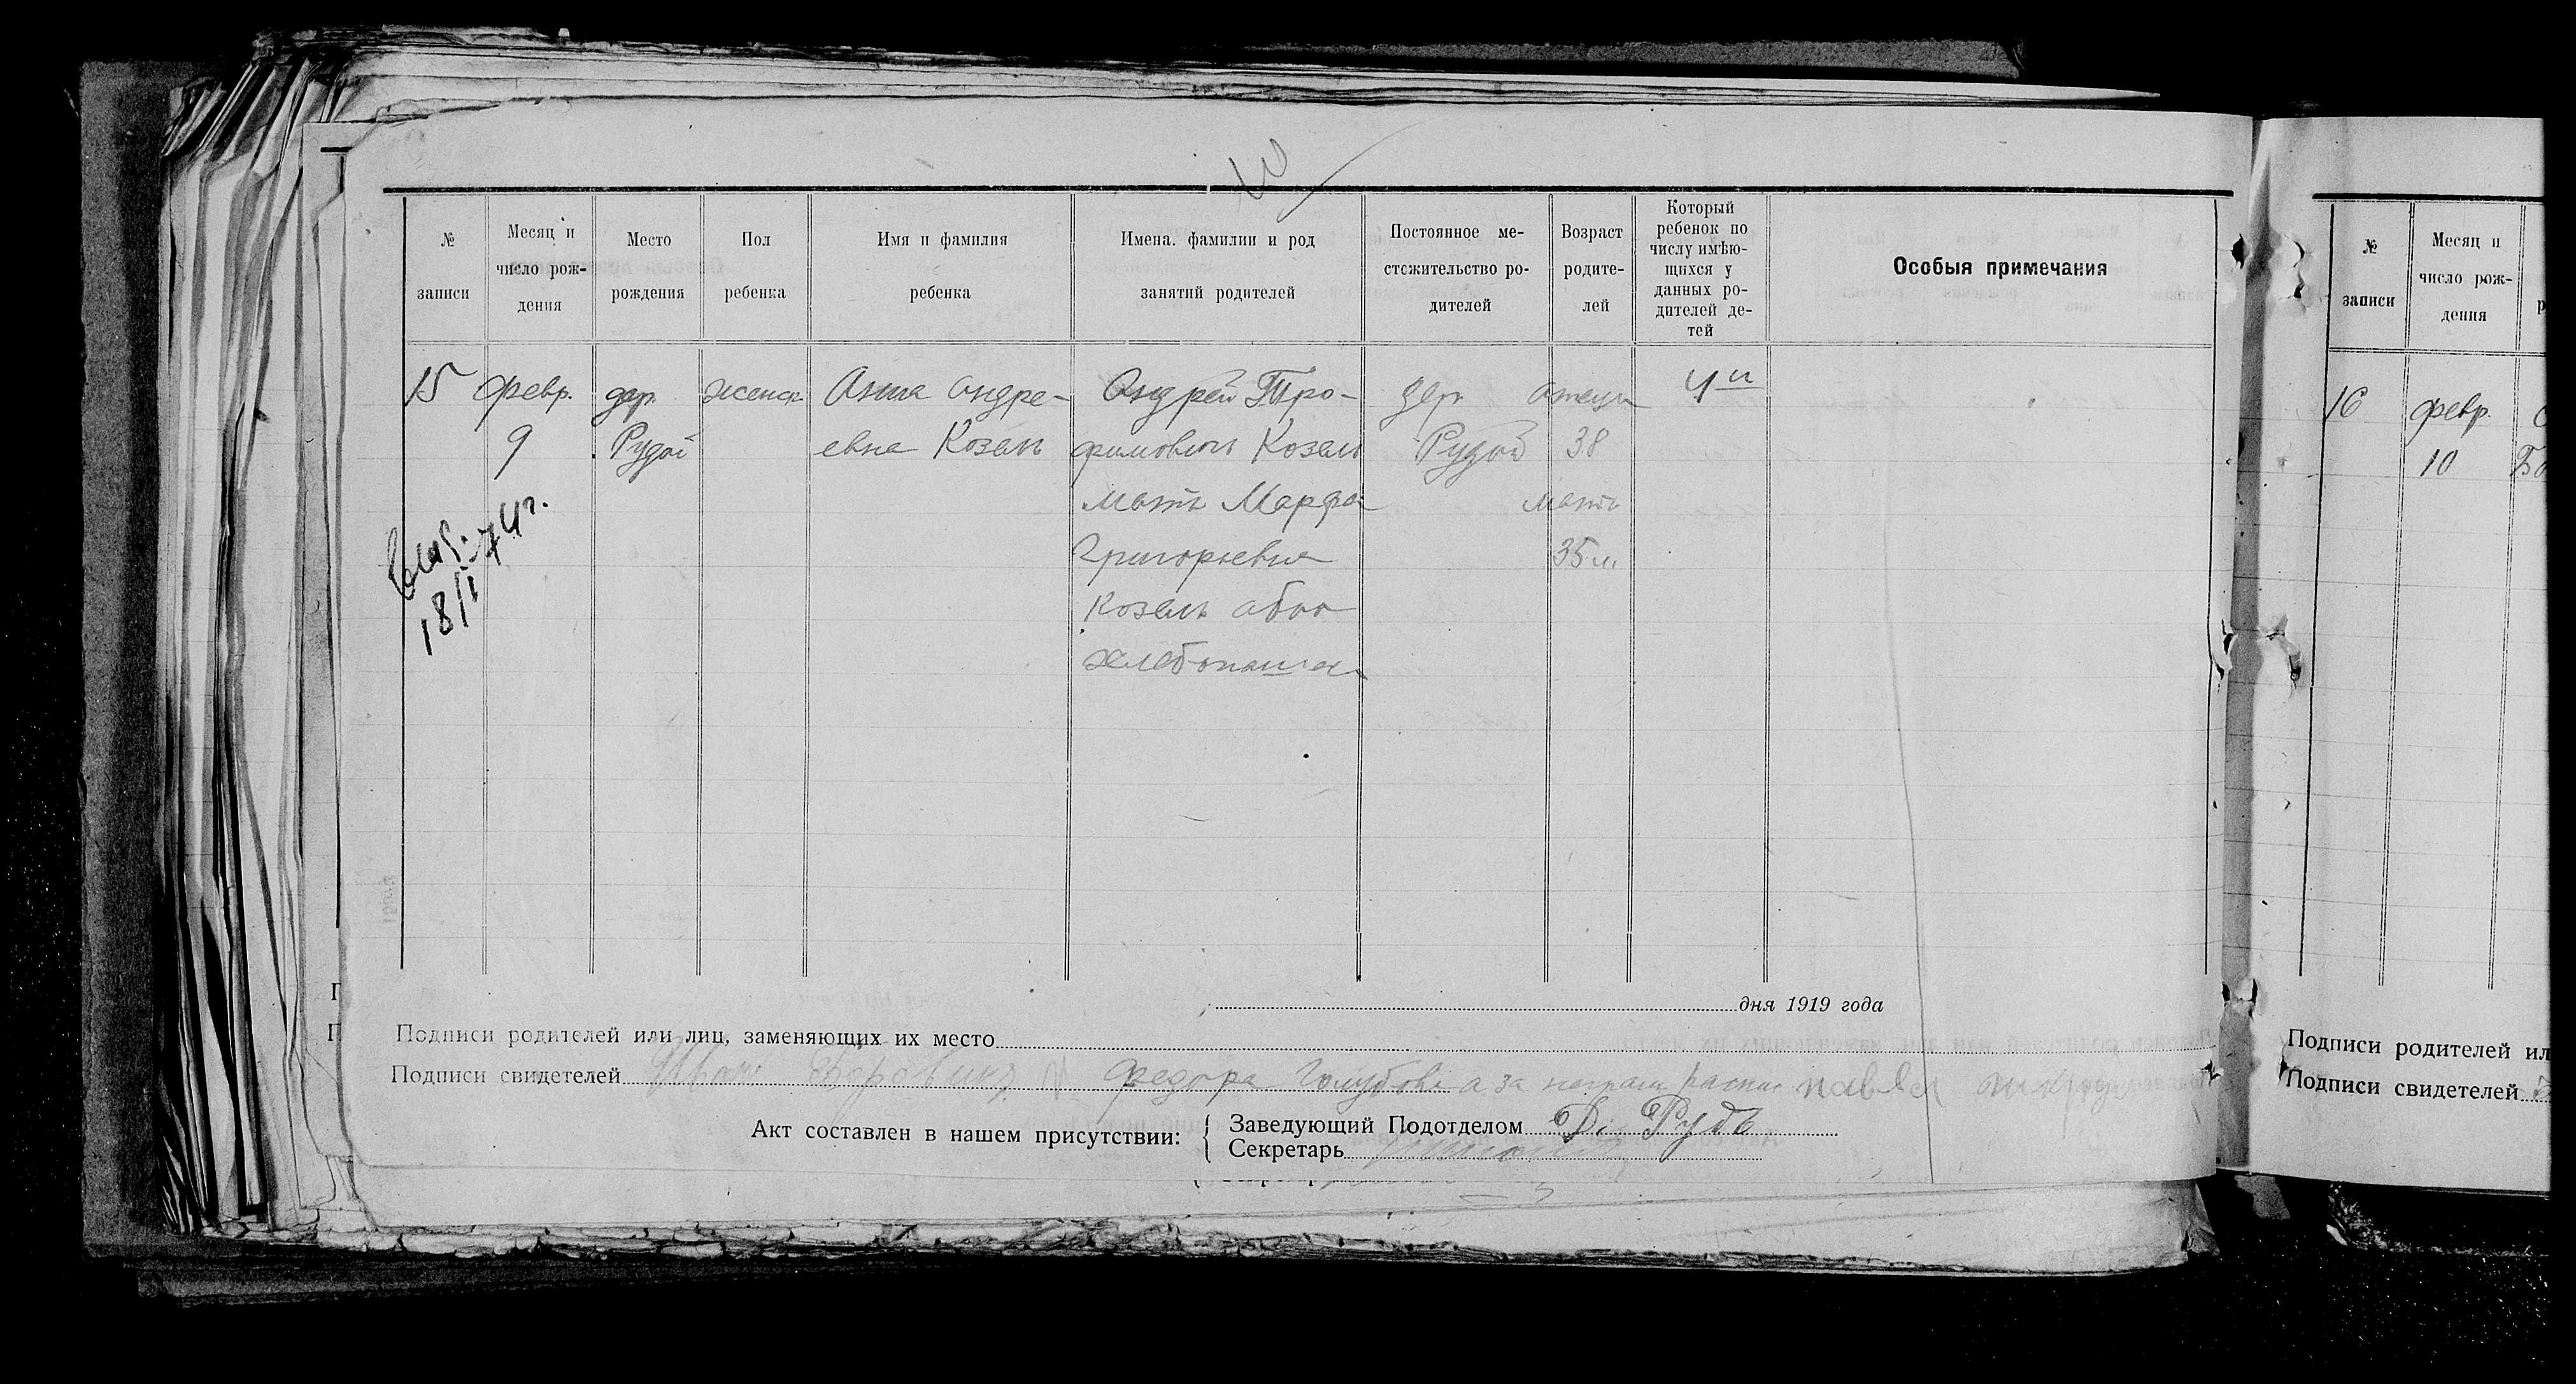 № записи
Месяц и число рож- дения
Место рождения
Пол ребенка
Имя и фамилия ребенка
Имена. фамилии и род занятий родителей
Постоянное ме- стожительство ро- дителей
Возраст родите- лей
Который ребенок по числу имѣю- щихся у данных ро- дителей де- тей
Особыя примечания
15 февр. дер. женск Анна Андре- Андрей Тро- дер. отец 4й
9 Рудой евна Козель фимович Козель Рудой 38
мать Марфа мать
Григорьевна 35 л.
Козель оба
хлебопашцы
18/I 74г.
дня 1919 года
Подписи родителей или лиц, заменяющих их место
Подписи свидетелей Иван Федора Голубова а за павел
Акт составлен в нашем присутствии:
Заведующий Подотделом Рудь
Секретарь
№ записи
Месяц и число рож- дения
16 февр.
10
Подписи родителей ил
Подписи свидетелей